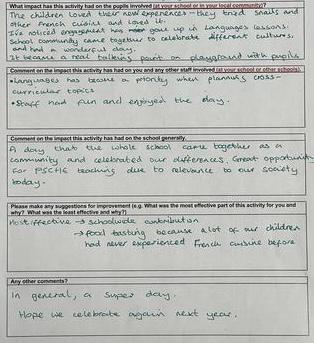 What impact has this activity had on the pupils involved (at your school or in your local community)?
The children loved their new experiences - they tried snails and
other French cuisine and loved it.
I've noticed engagement has gone up in Languages lessons.
School community came together to celebrate different cultures,
and had a wonderful day.
It became a real talking point on playground with pupils
Comment on the impact this activity has had on you and any other staff involved (at your school or other schools).
• Languages has become a priority when planning cross-
curricular topics
• Staff had fun and enjoyed the day.
Comment on the impact this activity has had on the school generally.
A day that the whole school came together as a
community and celebrated our differences. Great opportunity
for PSCHE teaching due to relevance to our society
today.
Please make any suggestions for improvement (e.g. What was the most effective part of this activity for you and
why? What was the least effective and why?)
Most effective → schoolwide contribution
→ food tasting because a lot of our children
had never experienced French cuisine before
Any other comments?
In general, a super day.
Hope we celebrate again next year.